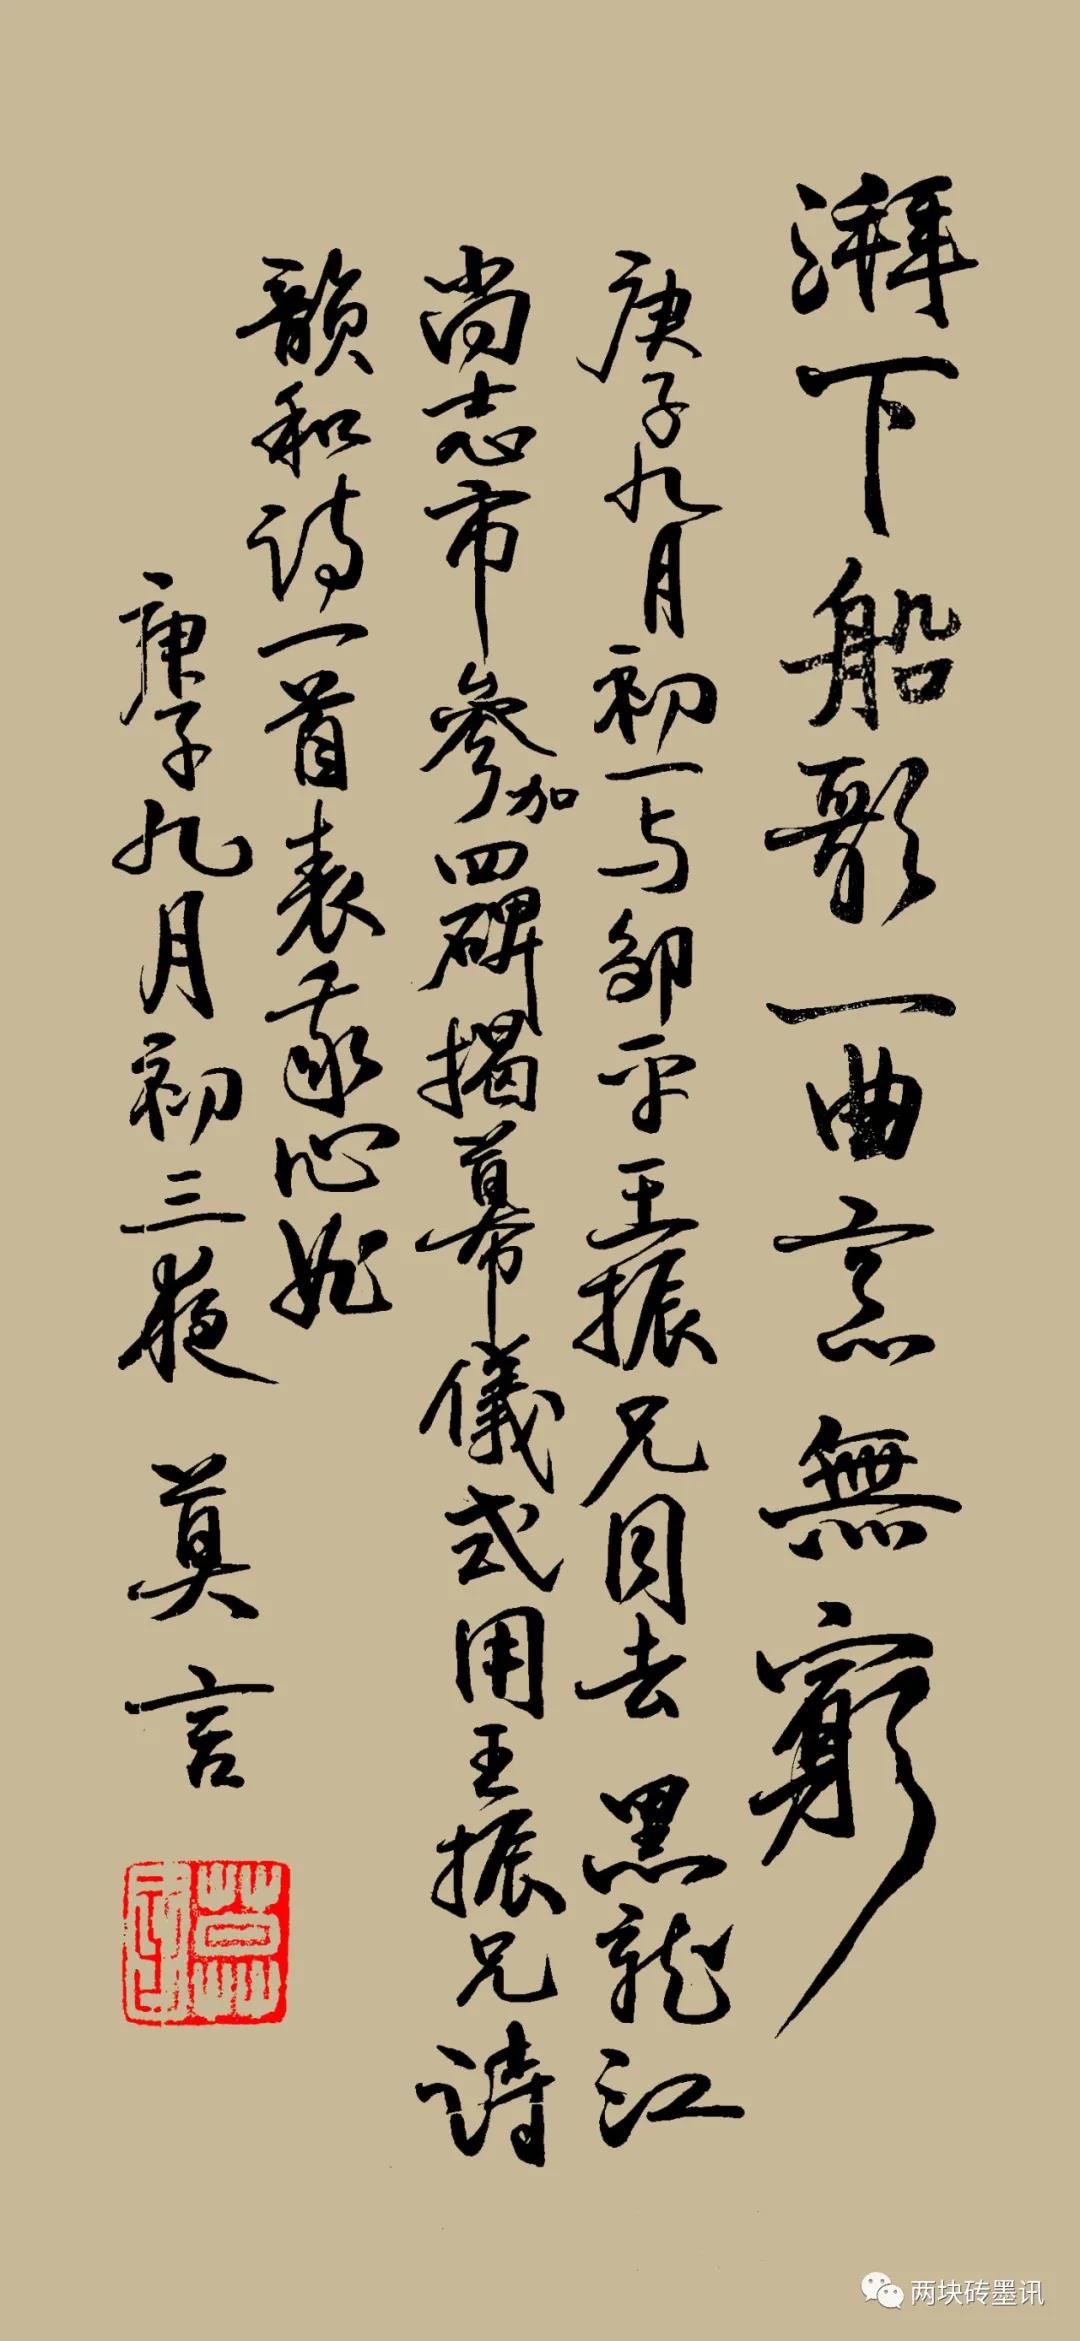 湃下船歌一曲意無窮
庚子九月初一与邹平王振兄同去黑龍江
尚志市參加四碑揭幕儀式用王振兄詩
韻和诗一首表我心
庚子九月初三夜 莫言
两块砖墨讯